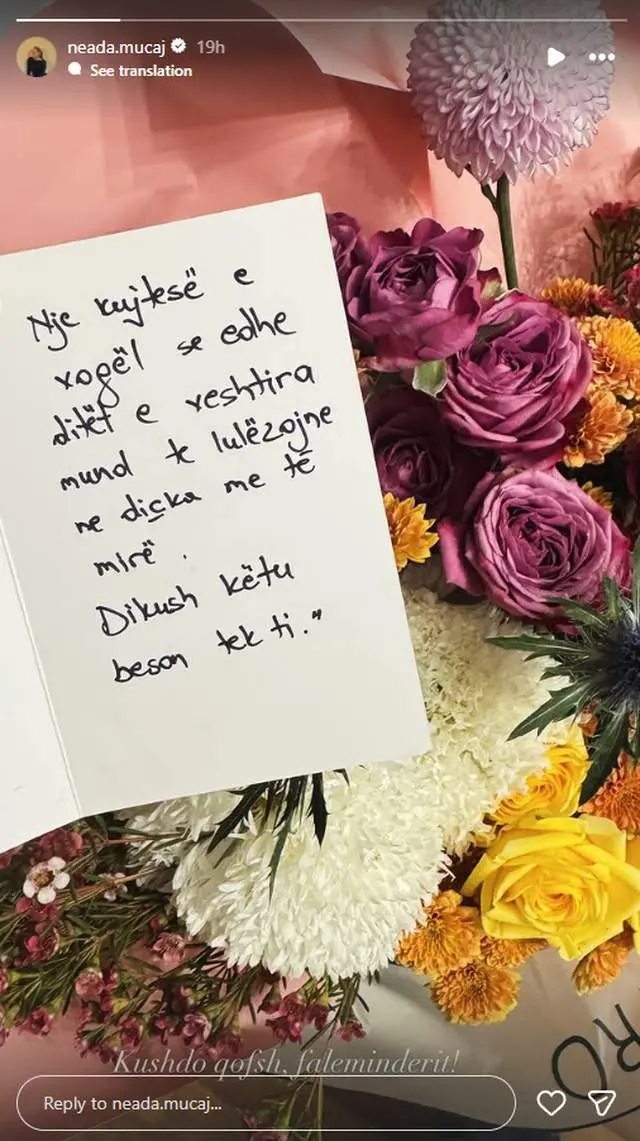 neada.mucaj 19h
See translation
Nje kujtesë e
vogël se edhe
ditët e veshtira
mund te lulëzojne
ne diçka me të
mirë.
Dikush këtu
beson tek ti."
Kushdo qofsh, faleminderit!
Reply to neada.mucaj...